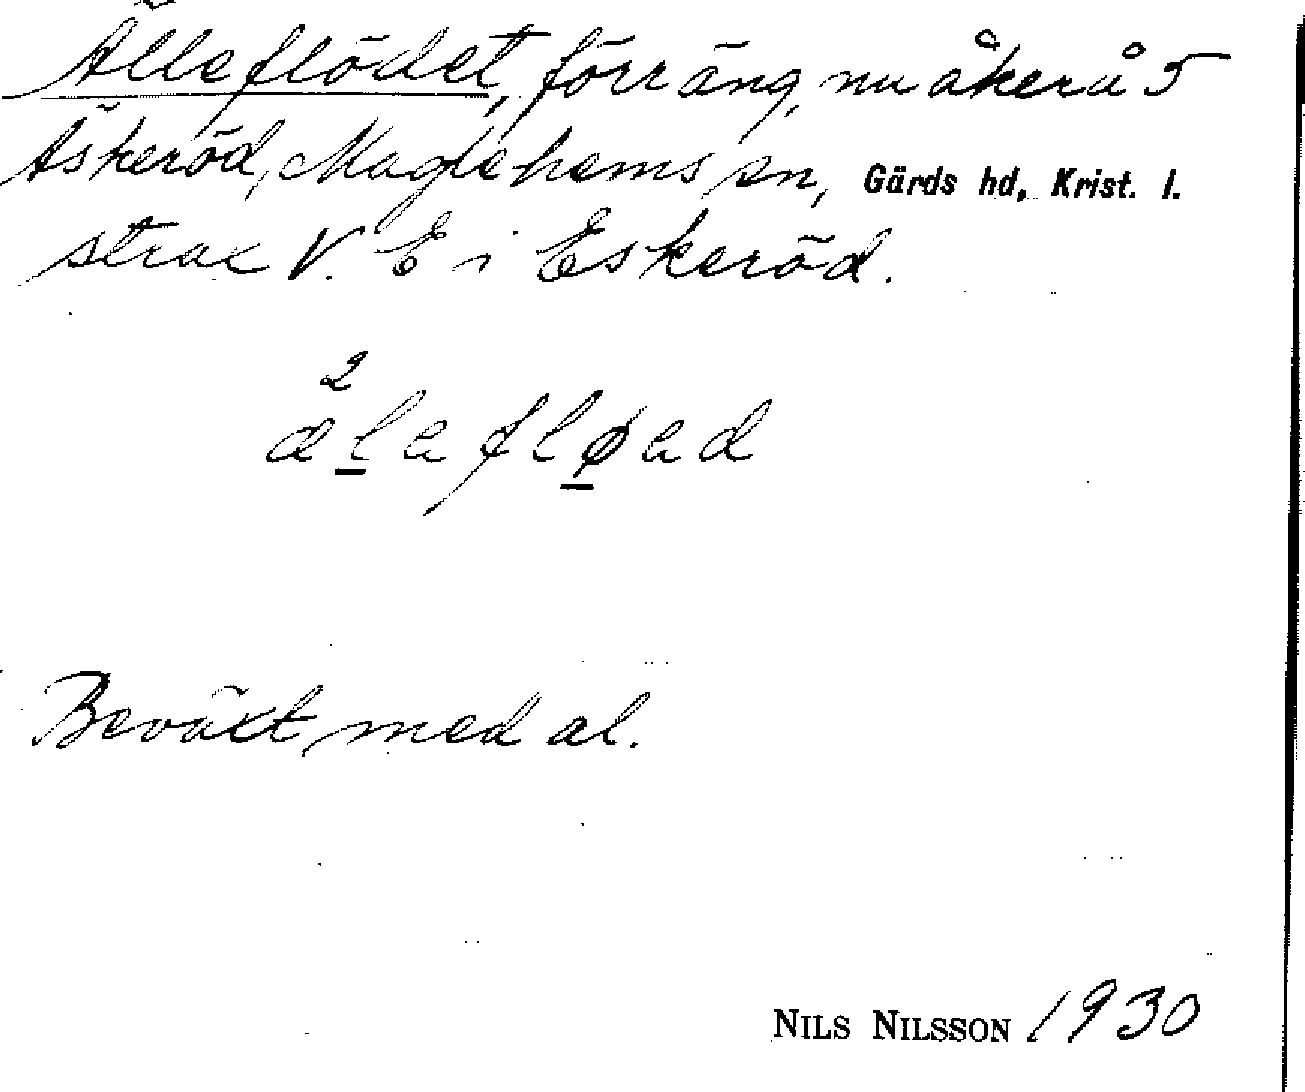 Älleflödet, förr äng, nu åker å 5
Äskeröd, Maglehems sn, Gärds hd, Krist. l.
strax V. E i Eskeröd.
2
ælafløad
Beväxt med al.
NILS NILSSON 1930